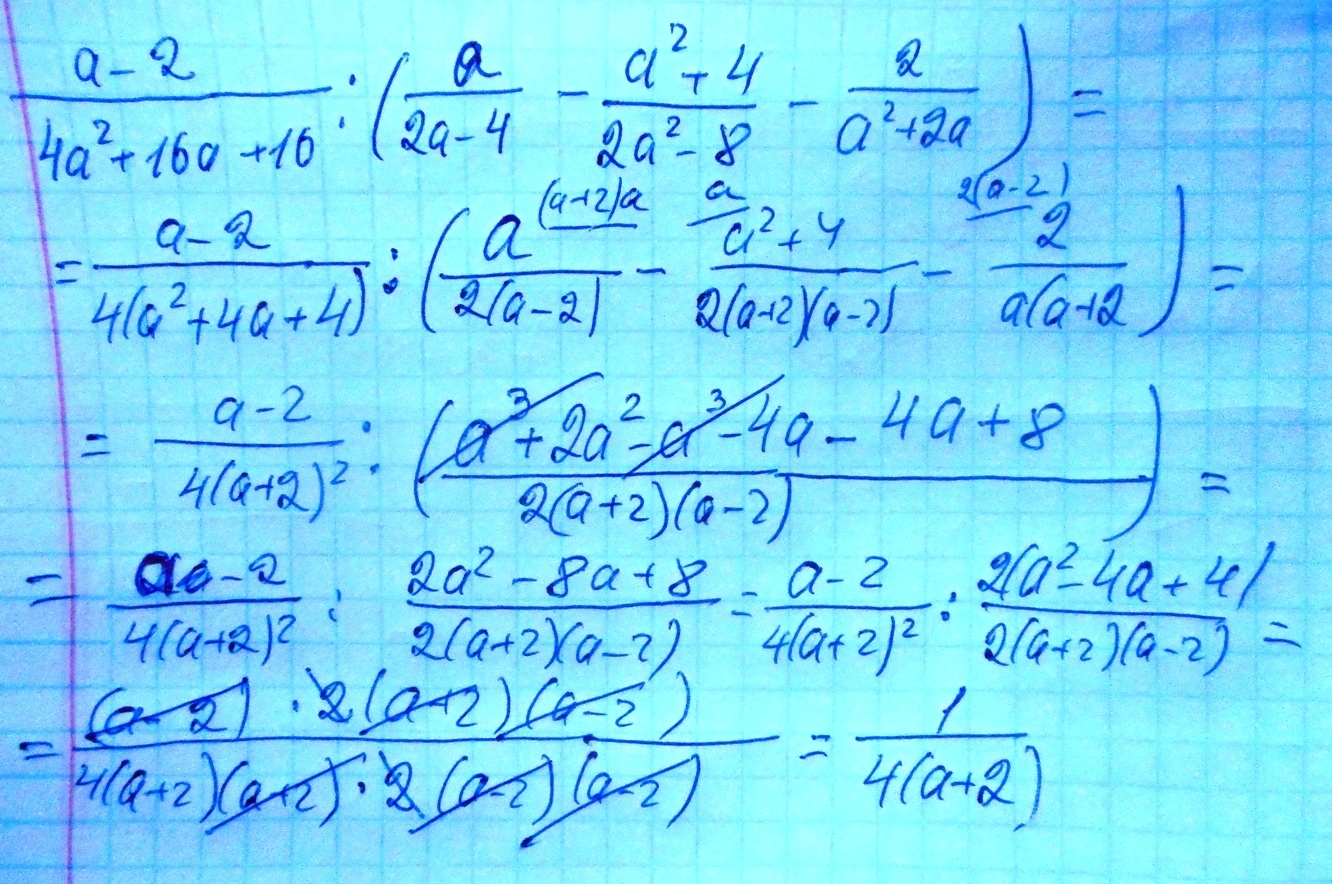 (a-2)/(4a²+16a+16) : (a/(2a-4) - (a²+4)/(2a²-8) - 2/(a²+2a)) =
= (a-2)/(4(a²+4a+4)) : (a^{(a+2)a}/(2(a-2)) - ^{a}(a²+4)/(2(a+2)(a-2)) - 2^{2(a-2)}/(a(a+2)) =
= (a-2)/(4(a+2)²) : ((a³+2a²-a³-4a-4a+8)/(2(a+2)(a-2))) =
= (a-2)/(4(a+2)²) : (2a²-8a+8)/(2(a+2)(a-2)) = (a-2)/(4(a+2)²) : (2(a²-4a+4))/(2(a+2)(a-2)) =
= ((a-2)·2(a+2)(a-2))/(4(a+2)(a+2)·2(a-2)(a-2)) = 1/(4(a+2))